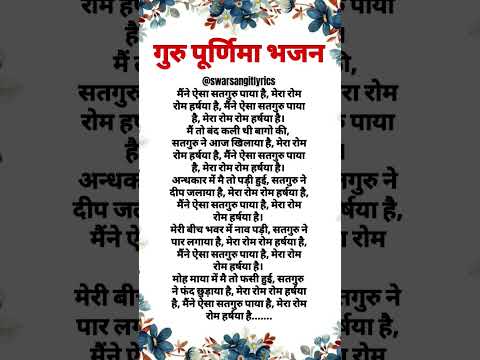 गुरु पूर्णिमा भजन
@swarsangitlyrics
मैंने ऐसा सतगुरु पाया है, मेरा रोम
रोम हर्षया है, मैंने ऐसा सतगुरु पाया
है, मेरा रोम रोम हर्षया है।
मैं तो बंद कली थी बागो की,
सतगुरु ने आज खिलाया है, मेरा रोम
रोम हर्षया है, मैंने ऐसा सतगुरु पाया
है, मेरा रोम रोम हर्षया है।
अन्धकार में मै तो पड़ी हुई, सतगुरु ने
दीप जलाया है, मेरा रोम रोम हर्षया है,
मैंने ऐसा सतगुरु पाया है, मेरा रोम
रोम हर्षया है।
मेरी बीच भवर में नाव पड़ी, सतगुरु ने
पार लगाया है, मेरा रोम रोम हर्षया है,
मैंने ऐसा सतगुरु पाया है, मेरा रोम
रोम हर्षया है।
मोह माया में मै तो फसी हुई, सतगुरु
ने फंद छुड़ाया है, मेरा रोम रोम हर्षया
है, मैंने ऐसा सतगुरु पाया है, मेरा रोम
रोम हर्षया है.......